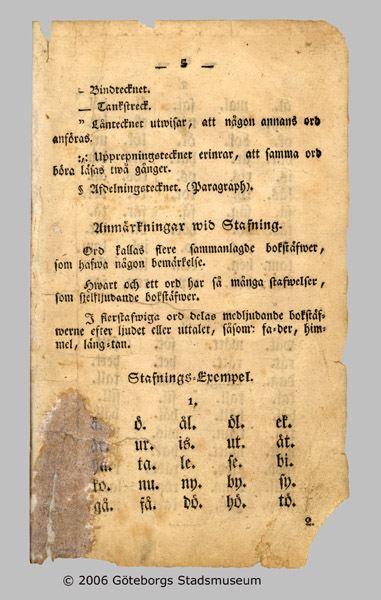 — 5 —
- Bindtecknet.
— Tankstreck.
" Låntecknet utwisar, att någon annans ord
anföras.
:,: Upprepningstecknet erinrar, att samma ord
böra läsas twå gånger.
§ Afdelningstecknet. (Paragraph).
Anmärkningar wid Stafning.
Ord kallas flere sammanlagde bokstäfwer,
som hafwa någon bemärkelse.
Hwart och ett ord har så många stafwelser,
som sjelfljudande bokstäfwer.
I flerstafwiga ord delas medljudande bokstäf-
werne efter ljudet eller uttalet, såsom: fa-der, him-
mel, lång-tan.
Stafnings-Exempel.
1,
ö. ål. öl. ek.
ur. is. ut. åt.
ta. le. se. bi.
ko. nu. ny. by. sy.
gå. få. dö. hö. tö.
2.
© 2006 Göteborgs Stadsmuseum